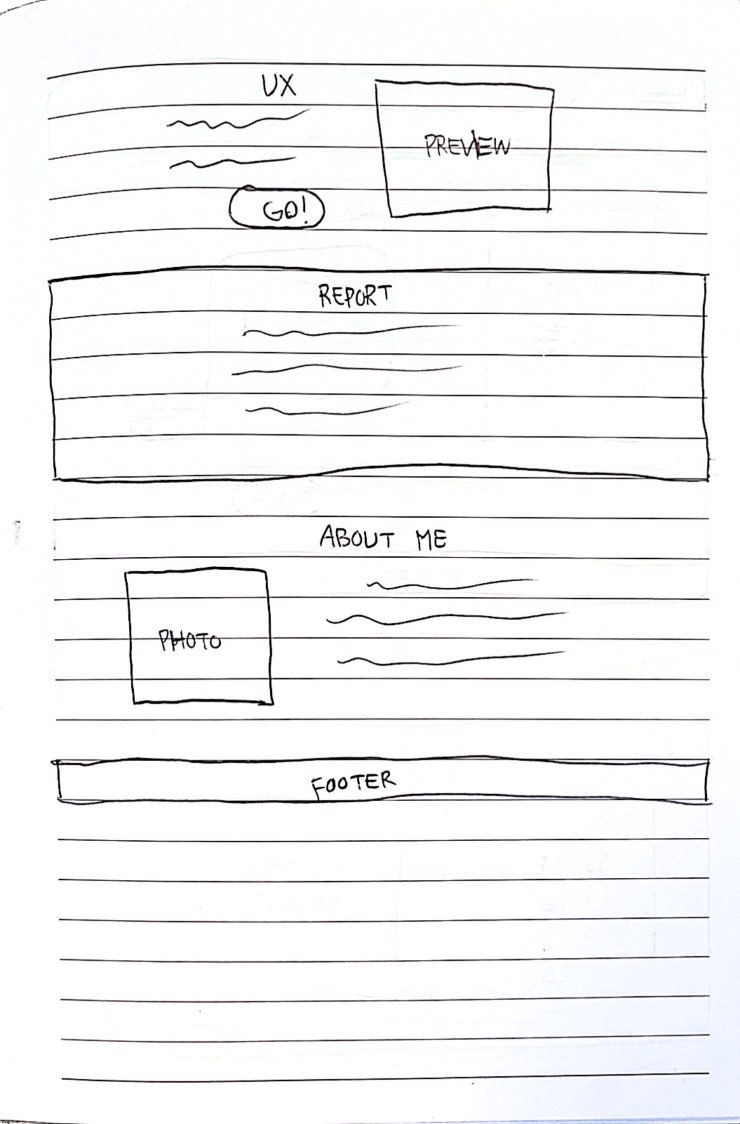 UX
PREVIEW
GO!
REPORT
ABOUT ME
PHOTO
FOOTER